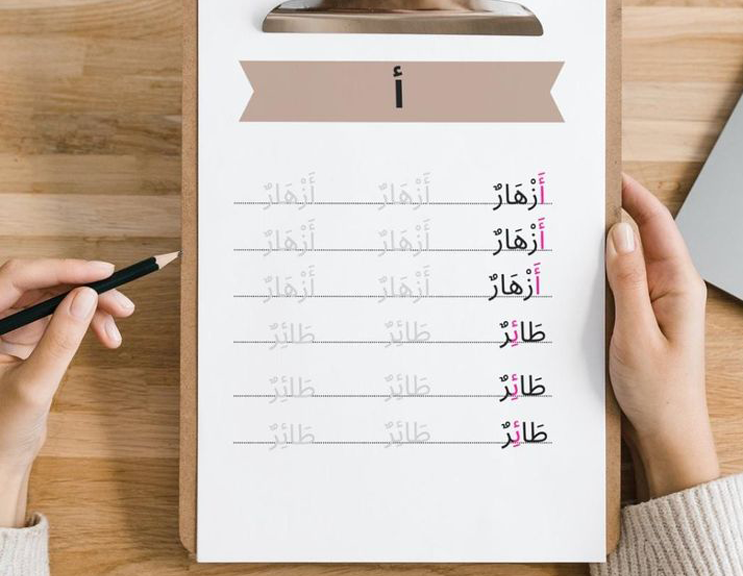 أ
أَزْهَارٌ أَزْهَارٌ أَزْهَارٌ
أَزْهَارٌ أَزْهَارٌ أَزْهَارٌ
أَزْهَارٌ أَزْهَارٌ أَزْهَارٌ
طَائِرٌ طَائِرٌ طَائِرٌ
طَائِرٌ طَائِرٌ طَائِرٌ
طَائِرٌ طَائِرٌ طَائِرٌ